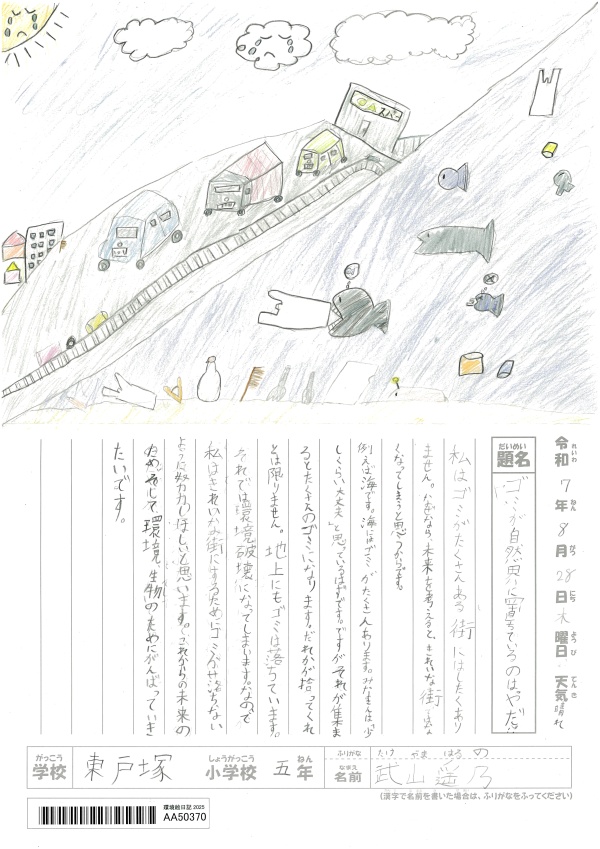 スーパー
令和7年8月28日木曜日 天気 晴れ
れいわ ねん がつ にち ようび てんき
だいめい
題名
「ゴミが自然界に落ちているのはやだ!!」
私はゴミがたくさんある街にはしたくあり
ません。なぜなら、未来を考えると、きれいな街ではな
くなってしまうと思うからです。
例えば海です。海にはゴミがたくさんあります。みなさんは、「少
しくらい大丈夫」と思っているはずです。ですがそれが集ま
るとたくさんのゴミになります。だれかが拾ってくれ
るとは限りません。地上にもゴミは落ちています。
それでは環境破壊になってしまいます。なので
私はきれいな街にするためにゴミが落ちない
ように努力してほしいと思います。これからの未来の
ため、そして環境、生物のためにがんばっていき
たいです。
がっこう
学校
東戸塚
しょうがっこう
小学校
五
ねん
年
ふりがな
たけ やま はるの
なまえ
名前
武山遥乃
(漢字で名前を書いた場合は、ふりがなをふってください)
環境絵日記 2025
AA50370